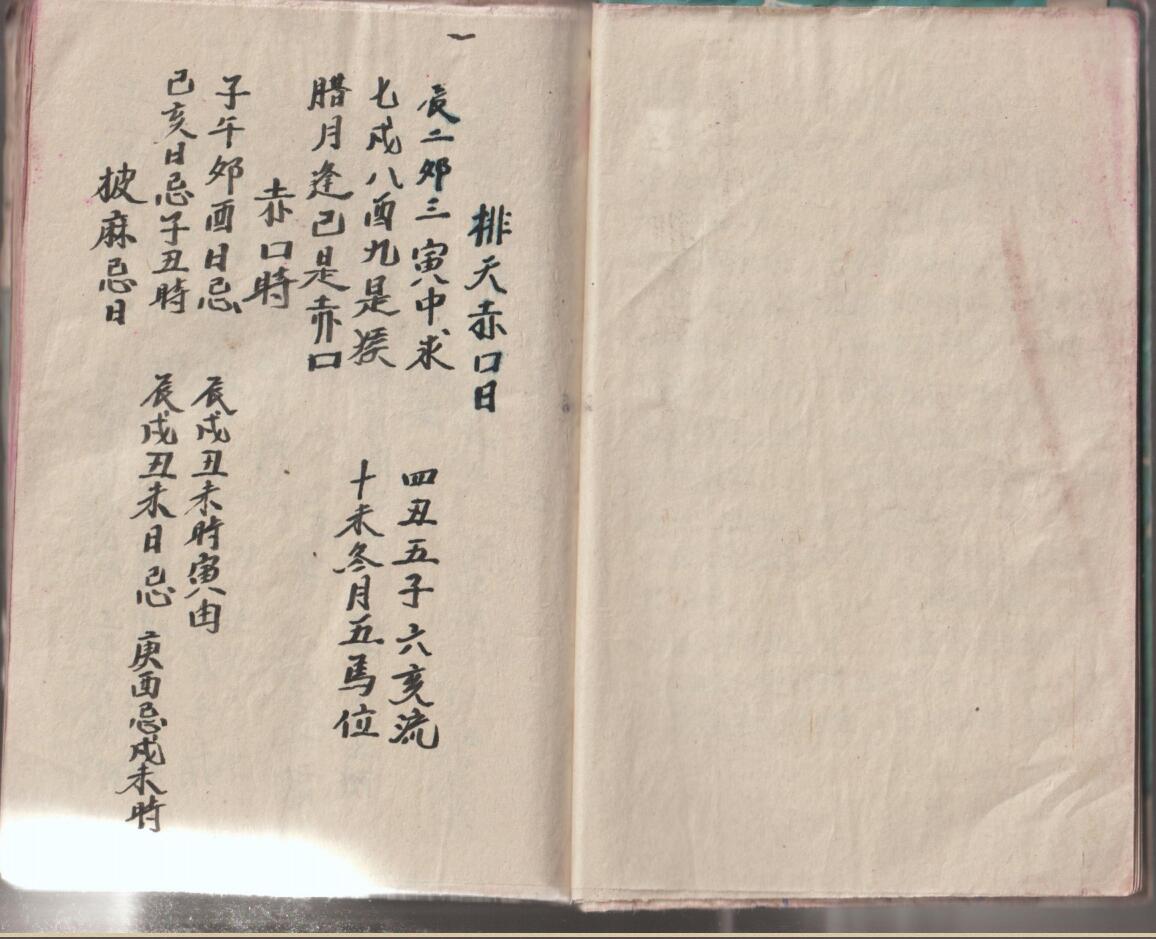 排天赤口日
一辰二卯三寅中求 四丑五子六亥流
七戌八酉九是猴 十未冬月五馬位
腊月逢巳是赤口
赤口時
子午卯酉日忌 辰戌丑未時寅由
巳亥日忌子丑時 辰戌丑未日忌 庚酉忌戌未時
披麻忌日